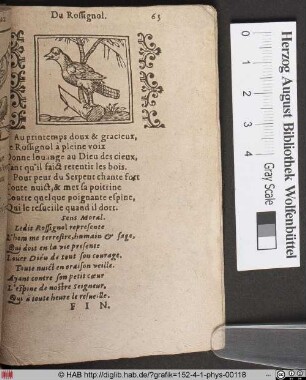 Du Rossignol. 63
Au printemps doux & gracieux,
Le Rossignol a pleine voix
Donne louange au Dieu des cieux,
Tant qu'il faict retentir les bois.
Pour peur du Serpent chante fort
Toute nuict, & met sa poitrine
Contre quelque poignante espine,
Qui le resueille quand il dort.
Sens Moral.
Ledit Rossignol represente
L'homme terrestre, humain & sage,
Qui doit en la vie presente
Louer Dieu de tout son courage,
Toute nuict en oraison veille.
Ayant contre son petit cœur
L'espine de nostre Seigneur,
Qui à toute heure le resueille.
FIN.
Herzog August Bibliothek Wolfenbüttel
Gray Scale
4
© HAB http://diglib.hab.de/?grafik=152-4-1-phys-00118